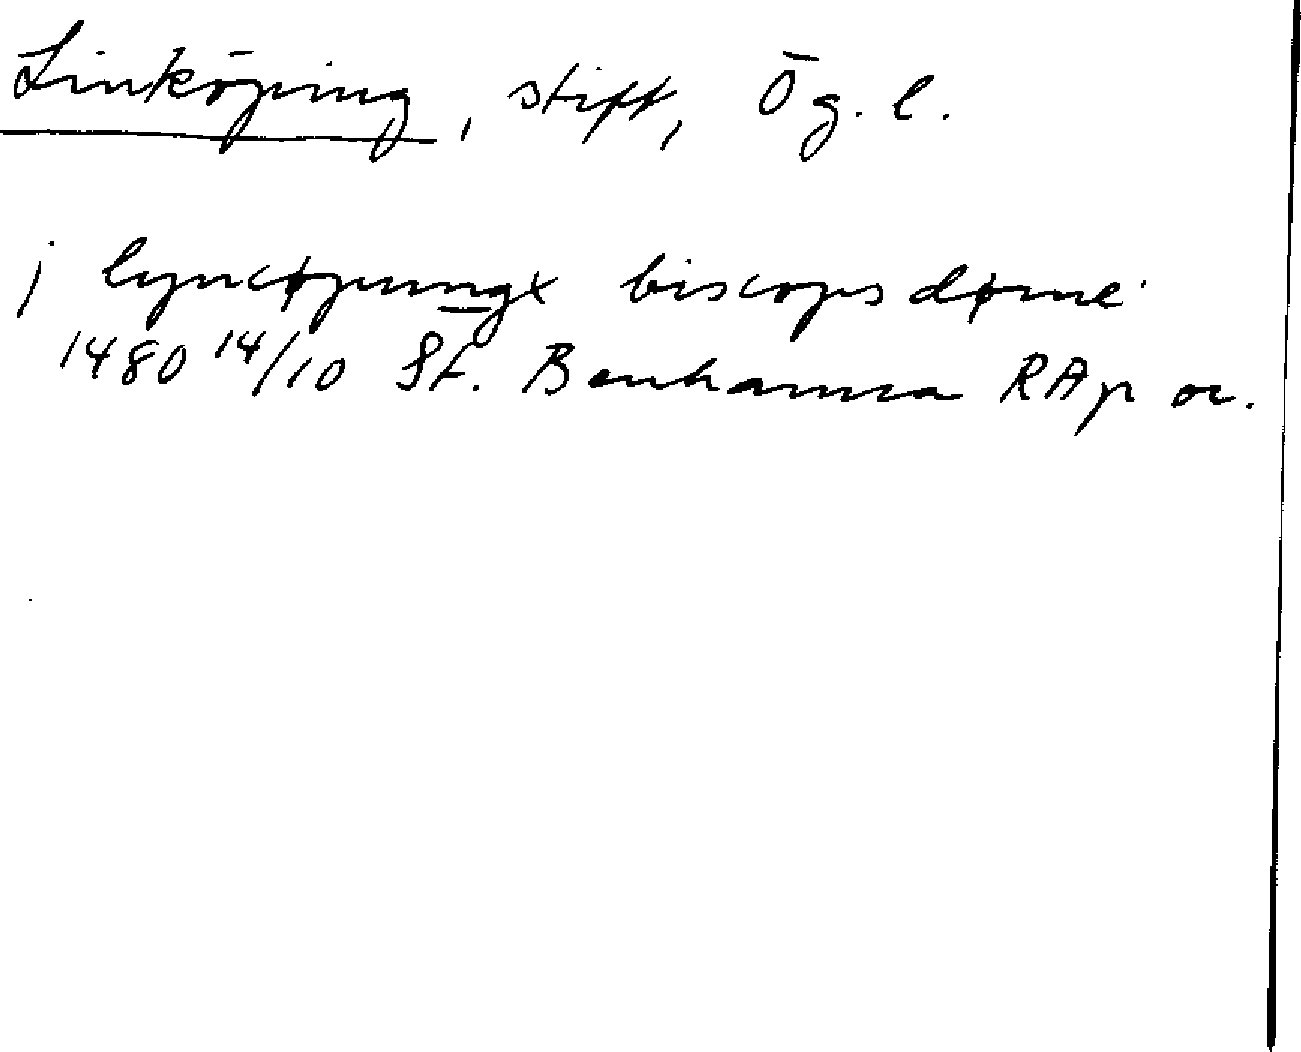 Linköping, stift, Ög. l.
j lyncøpungx biscops døme
1480 14/10 St. Benhamra RAp or.